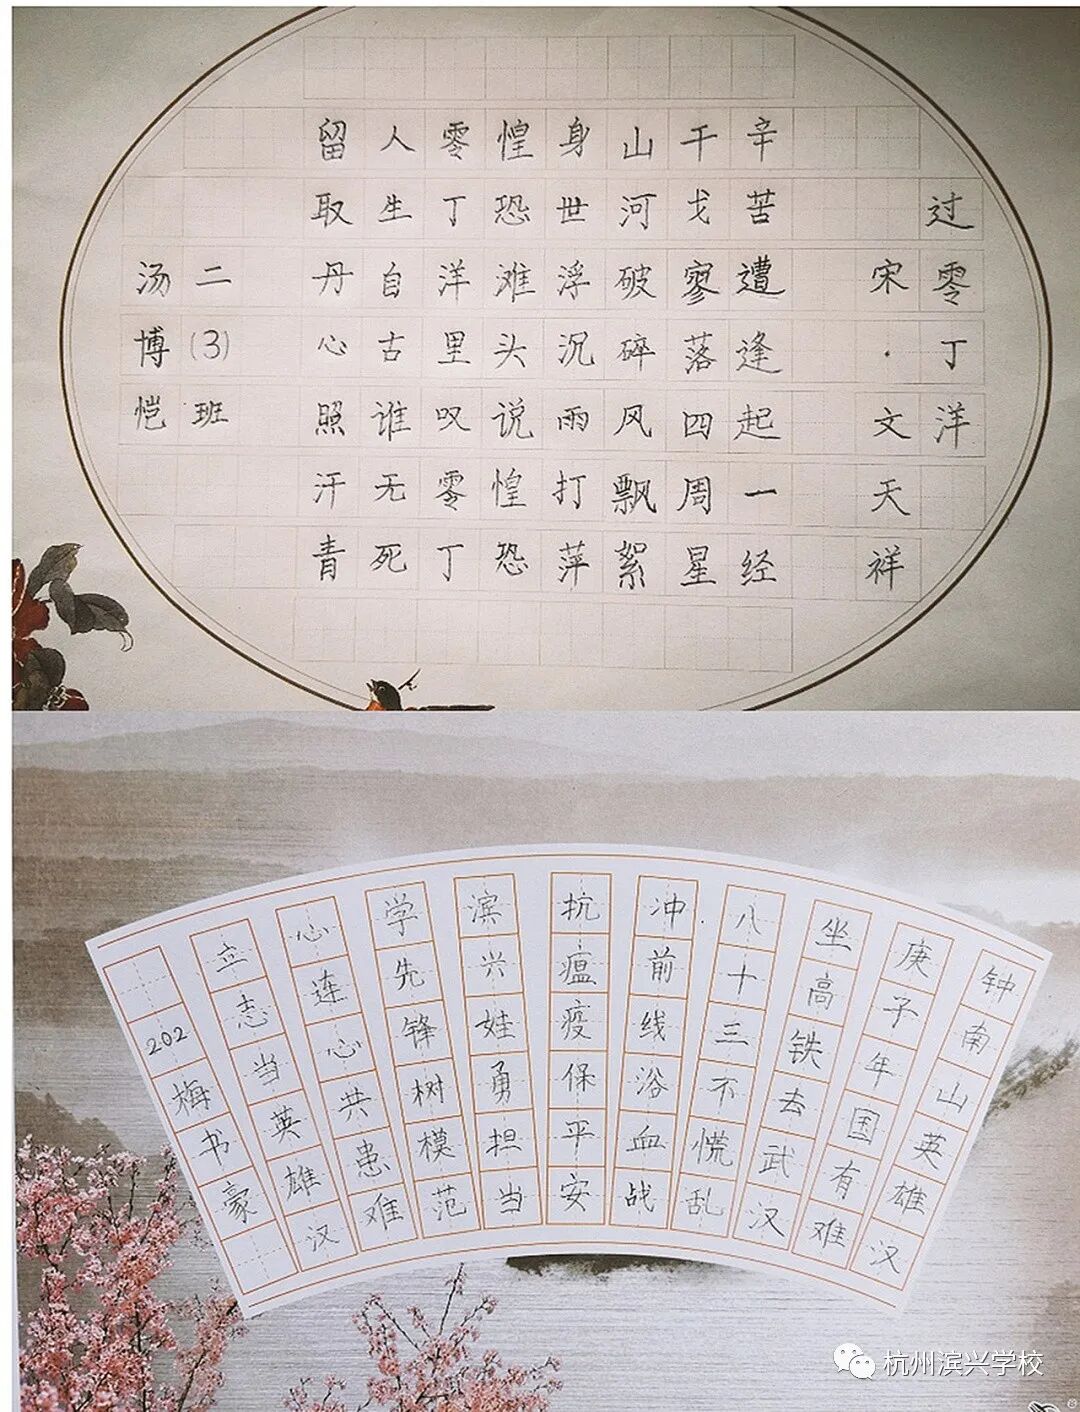 过零丁洋
宋·文天祥
辛苦遭逢起一经
干戈寥落四周星
山河破碎风飘絮
身世浮沉雨打萍
惶恐滩头说惶恐
零丁洋里叹零丁
人生自古谁无死
留取丹心照汗青
二(3)班
汤博恺
钟南山英雄汉
庚子年国有难
坐高铁去武汉
八十三不慌乱
冲前线浴血战
抗瘟疫保平安
滨兴娃勇担当
学先锋树模范
心连心共患难
立志当英雄汉
202梅书豪
杭州滨兴学校